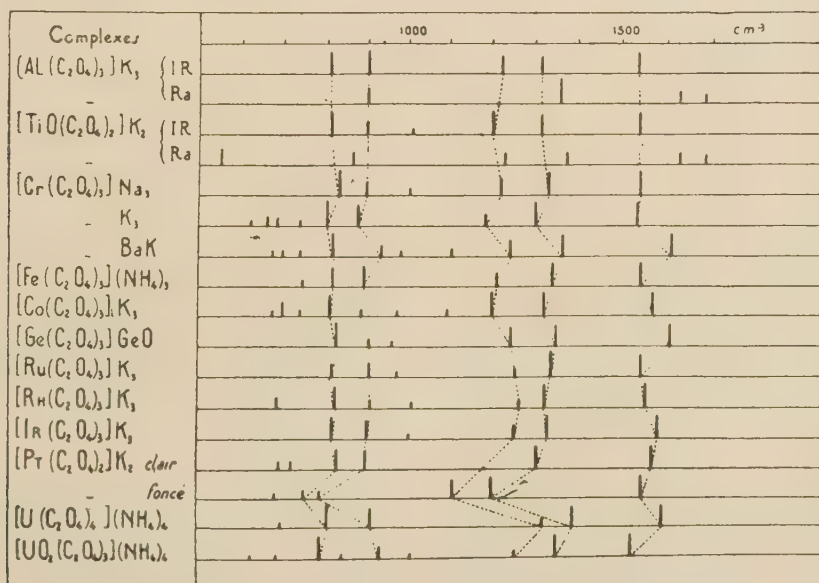 Complexes 1000 1500 cm⁻¹
[AL(C₂O₄)₃]K₃ { IR
„ { Ra
[TiO(C₂O₄)₂]K₂ { IR
„ { Ra
[Cr(C₂O₄)₃]Na₃
„ K₃
„ BaK
[Fe(C₂O₄)₃](NH₄)₃
[Co(C₂O₄)₃]K₃
[Ge(C₂O₄)₃]GeO
[Ru(C₂O₄)₃]K₃
[RH(C₂O₄)₃]K₃
[IR(C₂O₄)₃]K₃
[PT(C₂O₄)₂]K₂ clair
„ foncé
[U(C₂O₄)₄](NH₄)₄
[UO₂(C₂O₄)₃](NH₄)₄